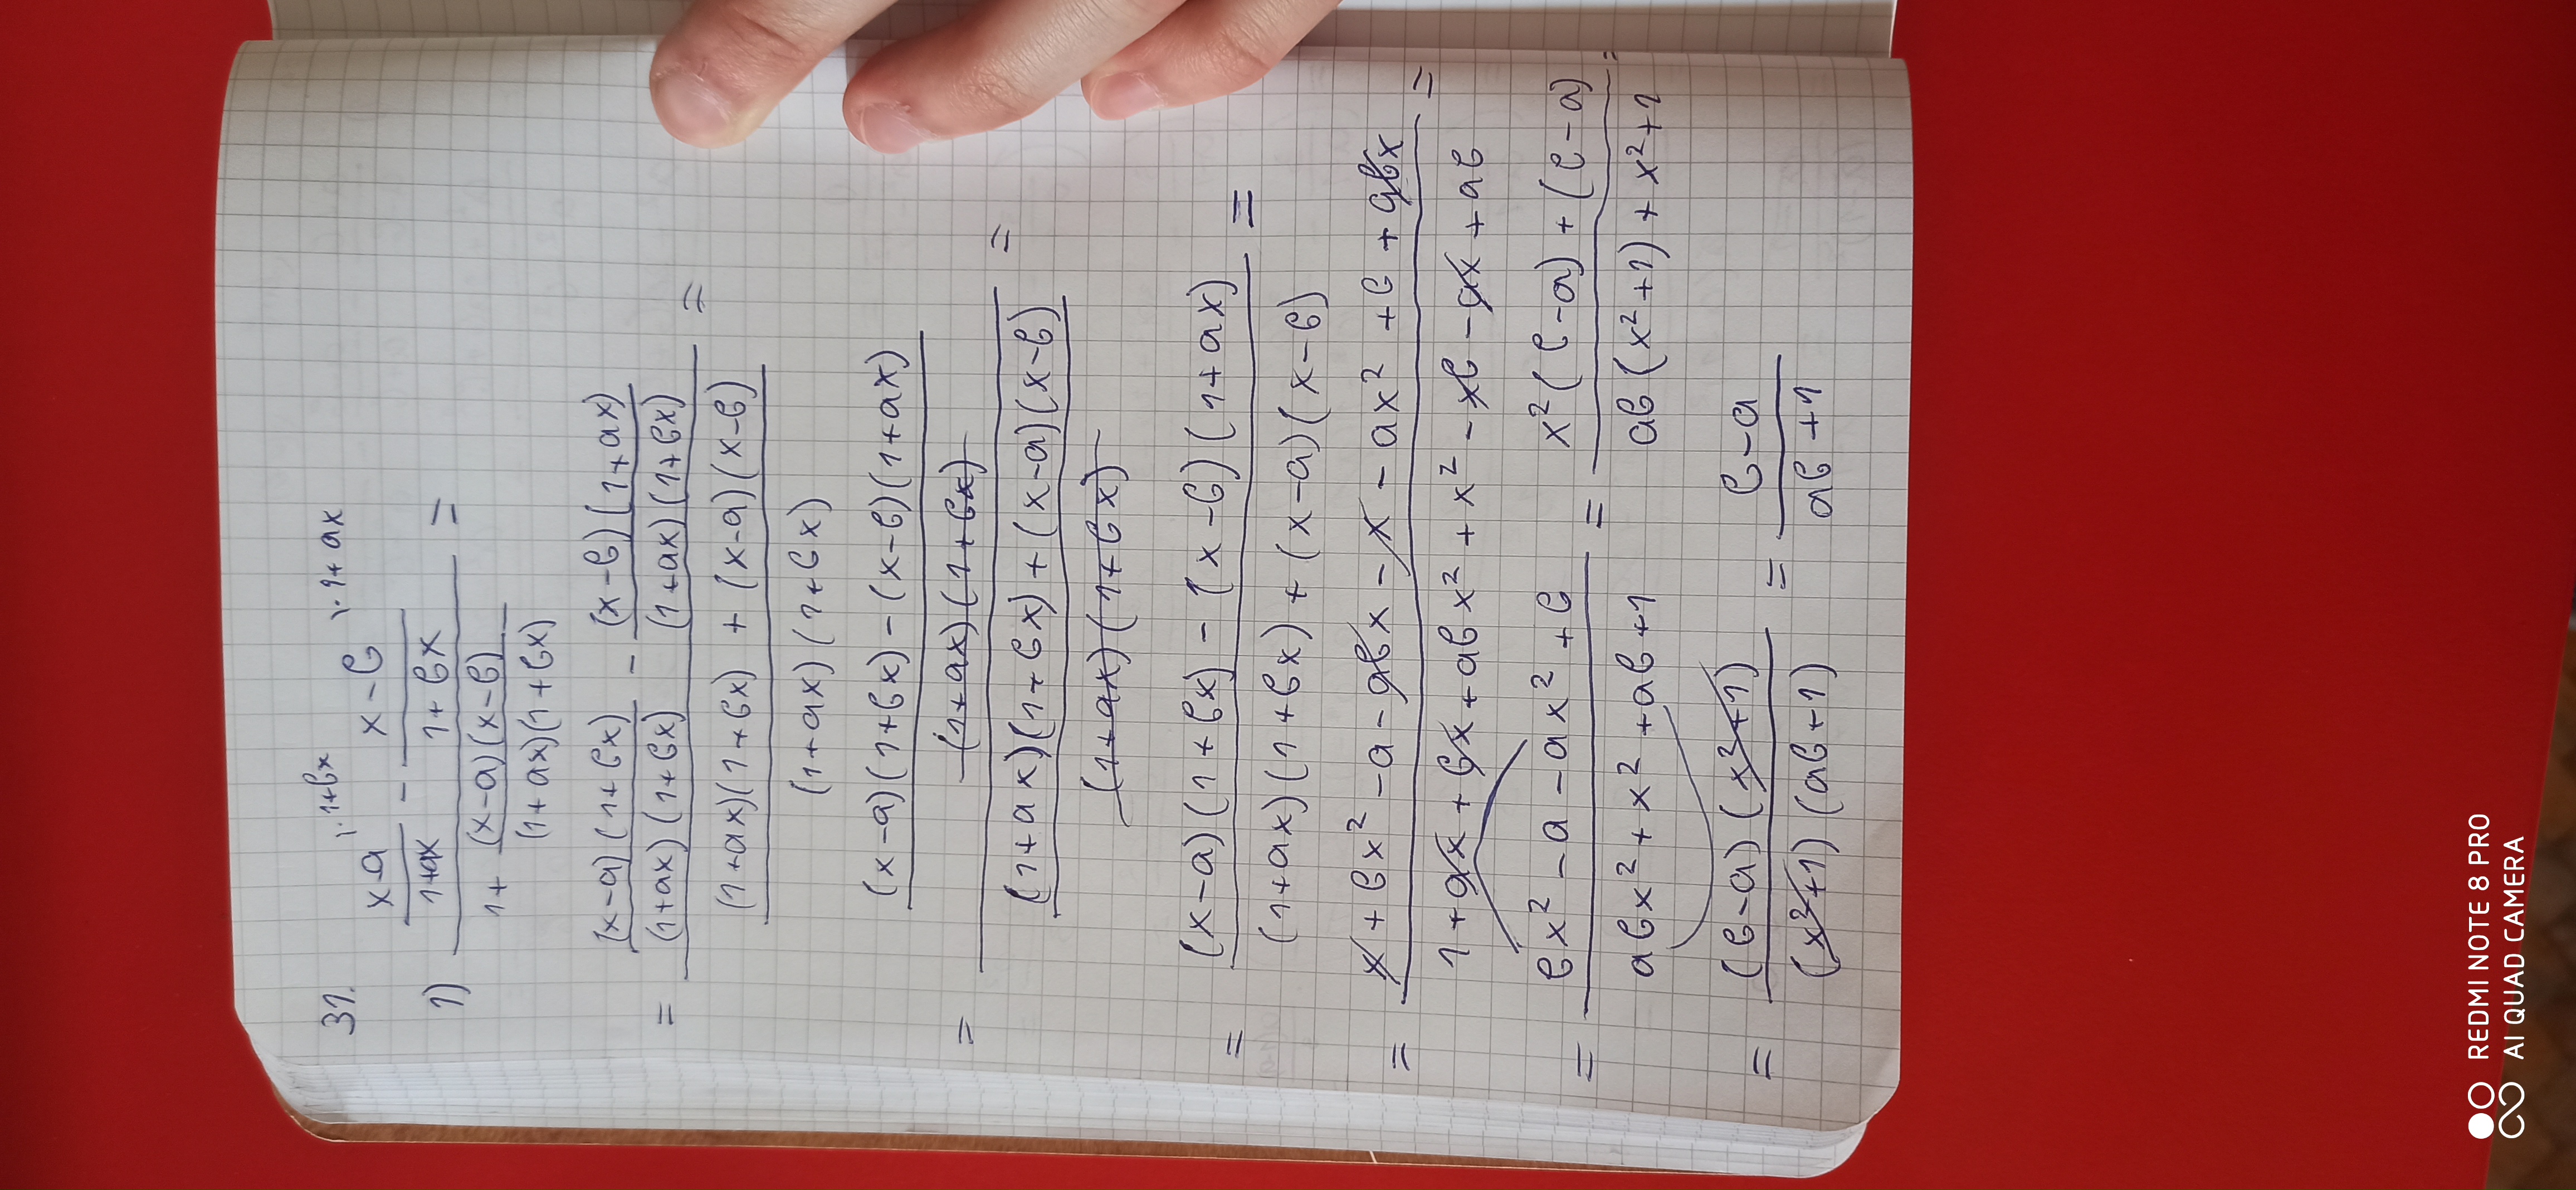 31.
1) \frac{\frac{x-a}{1+ax}^{|\cdot 1+bx} - \frac{x-b}{1+bx}^{|\cdot 1+ax}}{1+\frac{(x-a)(x-b)}{(1+ax)(1+bx)}} =
= \frac{\frac{(x-a)(1+bx)}{(1+ax)(1+bx)} - \frac{(x-b)(1+ax)}{(1+ax)(1+bx)}}{\frac{(1+ax)(1+bx) + (x-a)(x-b)}{(1+ax)(1+bx)}} =
= \frac{\frac{(x-a)(1+bx) - (x-b)(1+ax)}{(1+ax)(1+bx)}}{\frac{(1+ax)(1+bx) + (x-a)(x-b)}{(1+ax)(1+bx)}} =
= \frac{(x-a)(1+bx) - (x-b)(1+ax)}{(1+ax)(1+bx) + (x-a)(x-b)} =
= \frac{x + bx^2 - a - abx - x - ax^2 + b + abx}{1 + ax + bx + abx^2 + x^2 - xb - ax + ab} =
= \frac{bx^2 - a - ax^2 + b}{abx^2 + x^2 + ab + 1} = \frac{x^2(b-a) + (b-a)}{ab(x^2+1) + x^2+1} =
= \frac{(b-a)(x^2+1)}{(x^2+1)(ab+1)} = \frac{b-a}{ab+1}
REDMI NOTE 8 PRO
AI QUAD CAMERA